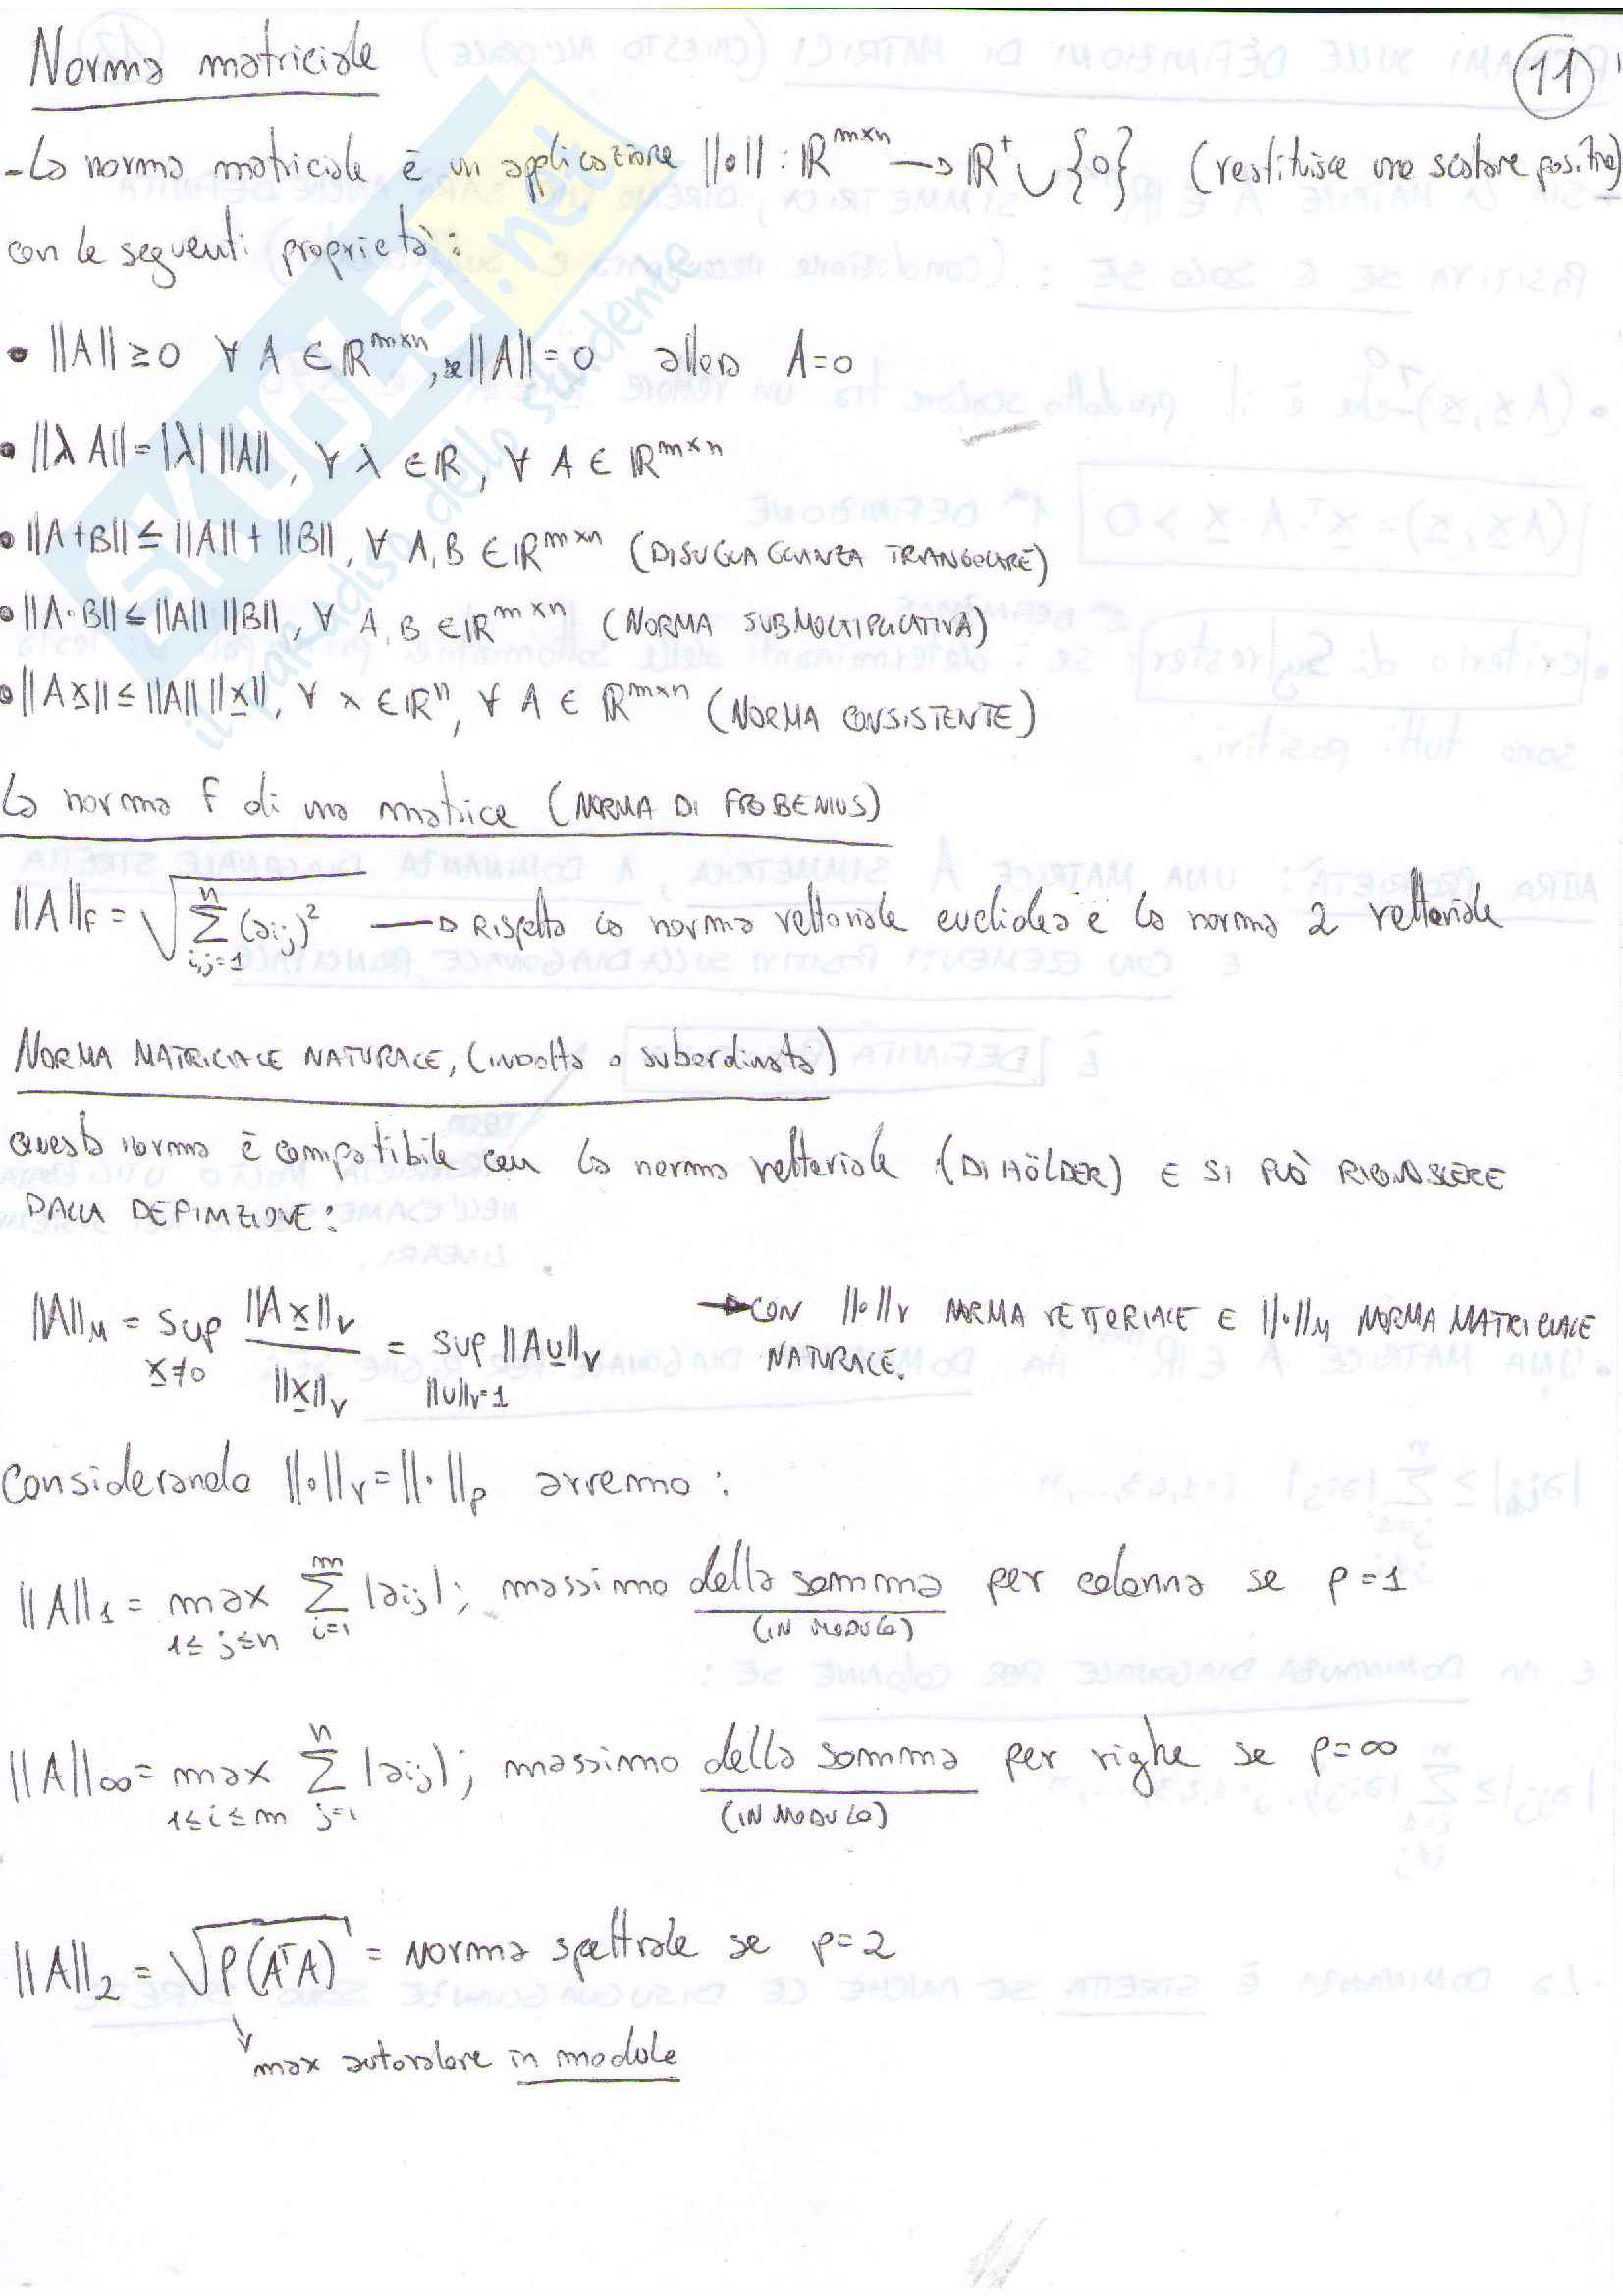 Norma matriciale
11
-La norma matriciale è un applicazione ||•|| : ℝ^{m×n} → ℝ⁺ ∪ {0} (restituisce uno scalare positivo)
con le seguenti proprietà:
• ||A|| ≥ 0 ∀ A ∈ ℝ^{m×n}, se ||A|| = 0 allora A=0
• ||λ A|| = |λ| ||A||, ∀ λ ∈ ℝ, ∀ A ∈ ℝ^{m×n}
• ||A+B|| ≤ ||A|| + ||B||, ∀ A, B ∈ ℝ^{m×n} (DISUGUAGLIANZA TRIANGOLARE)
• ||A·B|| ≤ ||A|| ||B||, ∀ A, B ∈ ℝ^{m×n} (NORMA SUBMOLTIPLICATIVA)
• ||Ax|| ≤ ||A|| ||x||, ∀ x ∈ ℝⁿ, ∀ A ∈ ℝ^{m×n} (NORMA CONSISTENTE)
La norma F di una matrice (NORMA DI FROBENIUS)
||A||_F = √(∑_{i,j=1}^{n} (aij)²) → Rispetto la norma vettoriale euclidea è la norma 2 vettoriale
NORMA MATRICIALE NATURALE, (indotta o subordinata)
questa norma è compatibile con la norma vettoriale (DI HÖLDER) E SI PUÒ RICONOSCERE
DALLA DEFINIZIONE:
||A||_M = sup_{x≠0} ||Ax||_V / ||x||_V = sup_{||u||_V=1} ||Au||_V → CON ||•||_V NORMA VETTORIALE E ||•||_M NORMA MATRICIALE
NATURALE.
Considerando ||•||_V = ||•||_p avremo :
||A||₁ = max_{1≤j≤n} ∑_{i=1}^{m} |aij| ; massimo della somma per colonna se p=1
(IN MODULO)
||A||∞ = max_{1≤i≤m} ∑_{j=1}^{n} |aij| ; massimo della somma per righe se p=∞
(IN MODULO)
||A||₂ = √(ρ(AᵀA)) = Norma spettrale se p=2
max autovalore in modulo
SKUOLA.net
il paradiso dello studente